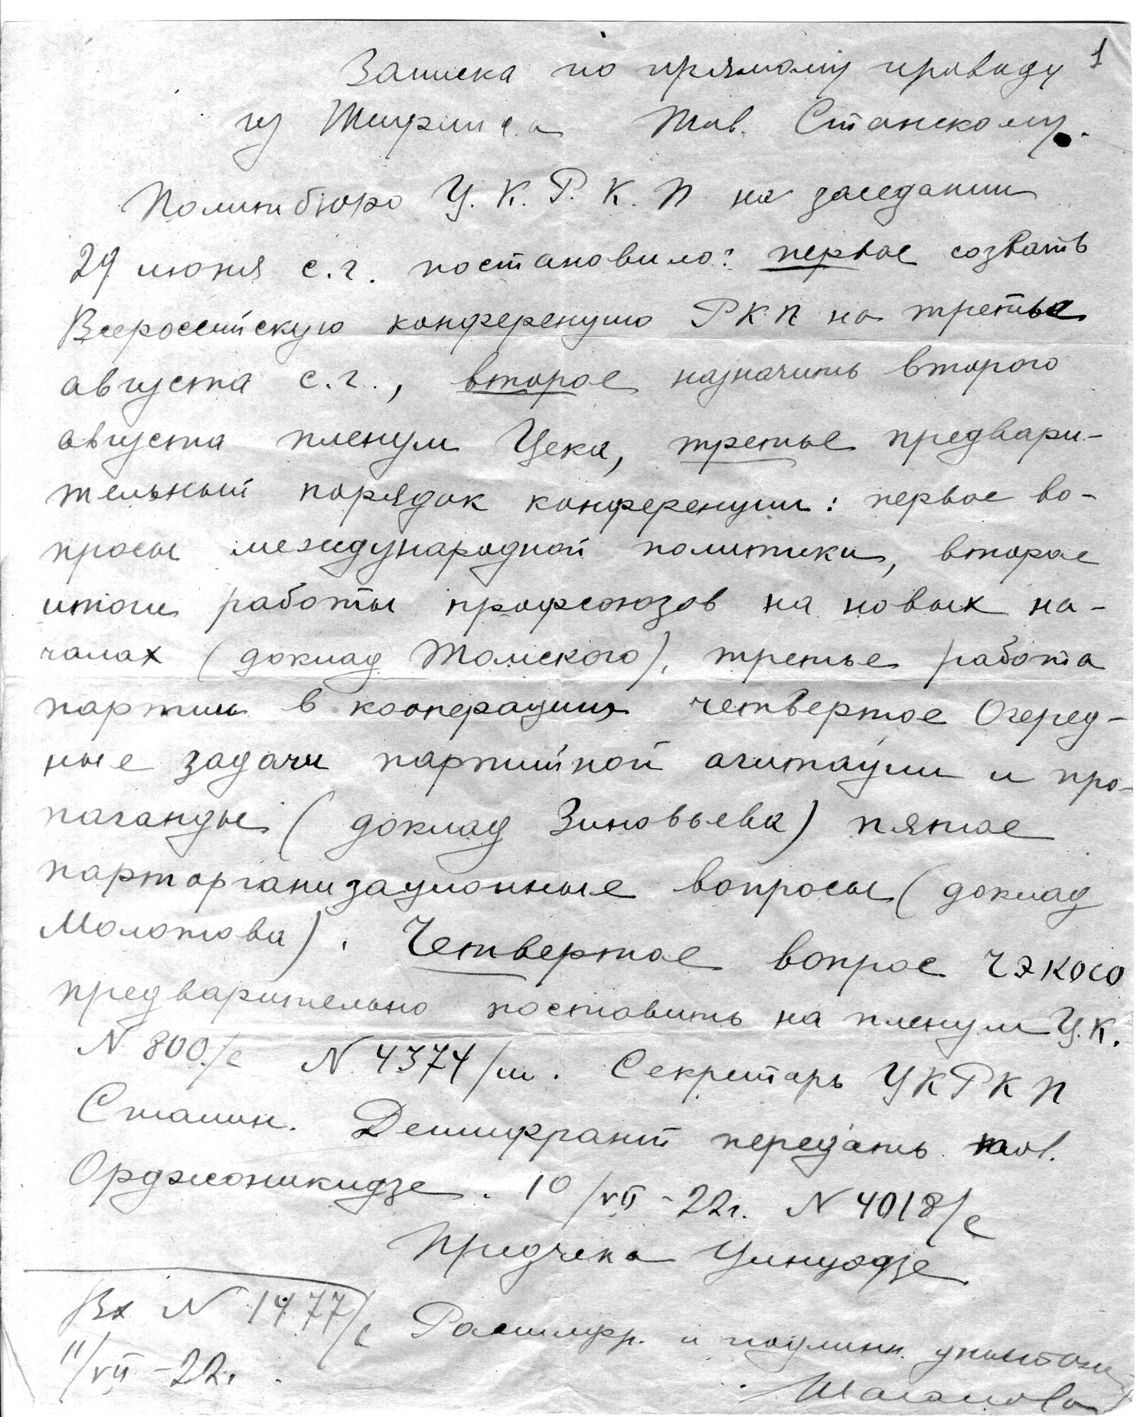 1
Записка по прямому проводу
из Тифлиса Тов. Станскому.
Политбюро Ц.К.Р.К.П на заседании
29 июня с.г. постановило: первое созвать
Всероссийскую конференцию РКП на третье
августа с.г., второе назначить второго
августа пленум Цека, третье предвари-
тельный порядок конференции: первое во-
просы международной политики, второе
итоги работы профсоюзов на новых на-
чалах (доклад Томского), третье работа
партии в кооперациях четвертое Очеред-
ные задачи партийной агитации и про-
паганды (доклад Зиновьева) пятое
парторганизационные вопросы (доклад
Молотова). Четвертое вопрос
предварительно поставить на пленум Ц.К.
N 800/с N 4374/ш. Секретарь ЦКРКП
Сталин. Дешифрант передать тов.
Орджоникидзе. 10/VII-22г. N 4018/с
Предчека Цинцадзе
Вх N 1477/с Расшифр. и подлинн.
11/VII-22г.